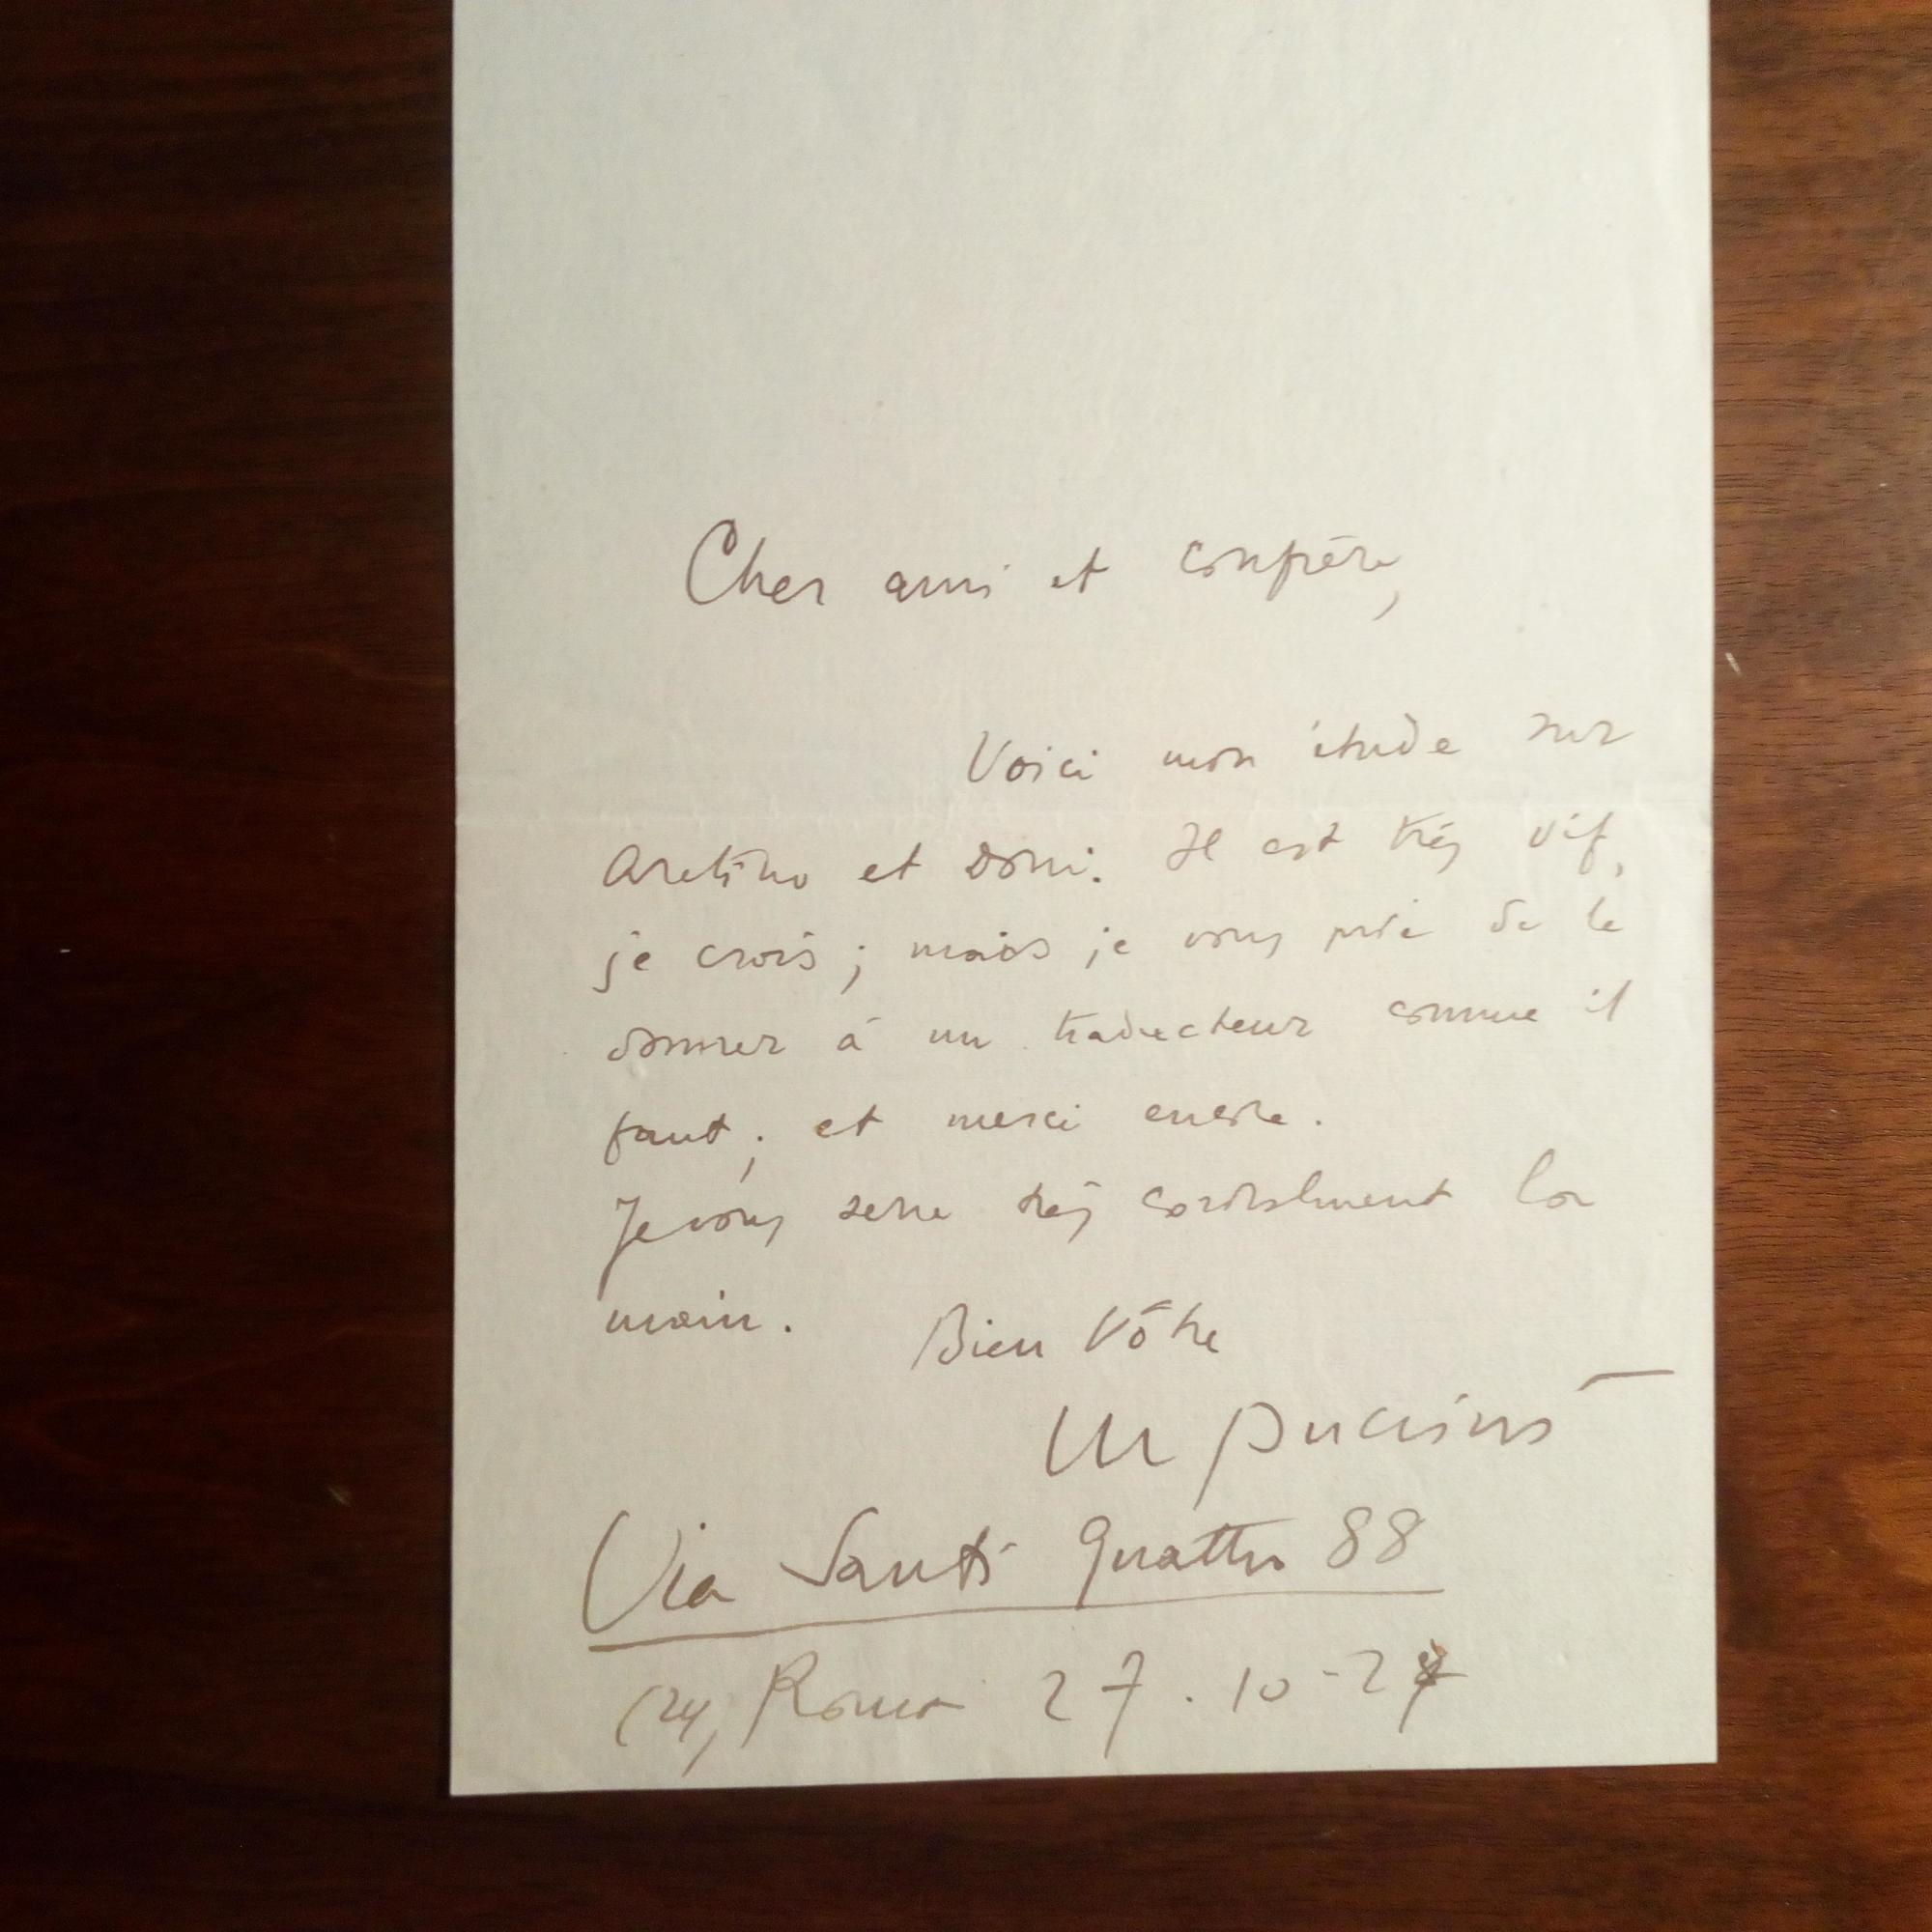 Cher ami et confrère,
Voici mon étude sur
Aretino et Doni. Il est très vif,
je crois ; mais je vous prie de le
donner à un traducteur comme il
faut ; et merci encore.
Je vous serre très cordialment la
main. Bien Vôtre
M Puccini
Via Santi Quattro 88
(24) Roma 27.10-27